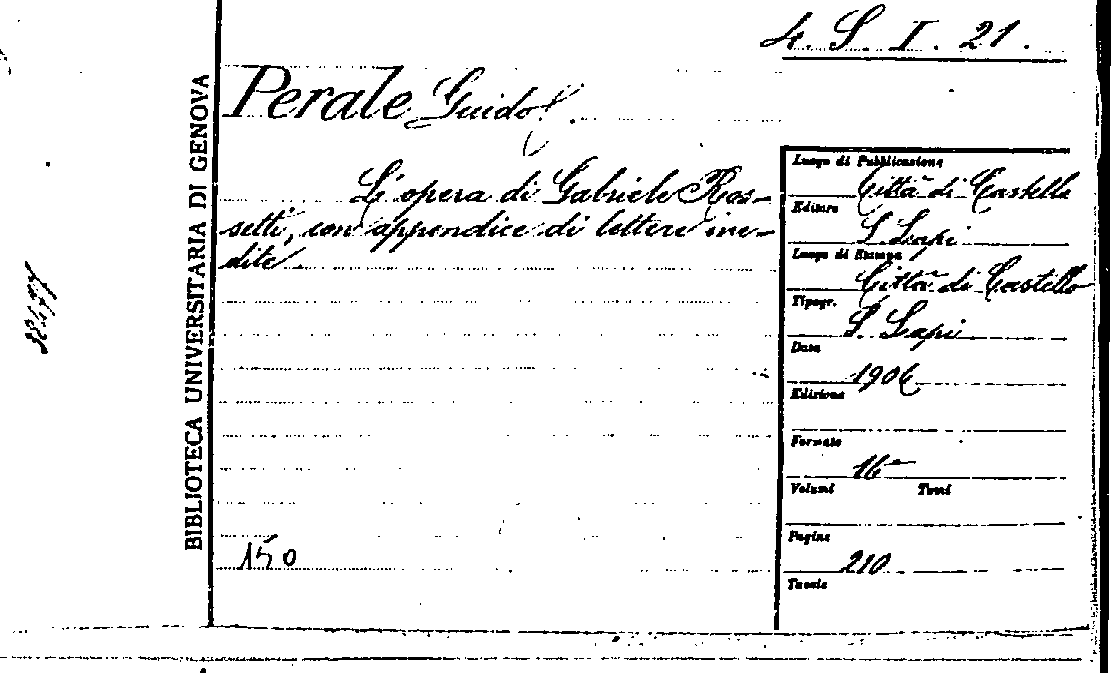 4. S. I. 21.
Perale Guido.
L'opera di Gabriele Ros-
setti, con appendice di lettere ine-
dite.
150
BIBLIOTECA UNIVERSITARIA DI GENOVA
Luogo di Pubblicazione
Città di Castello
Editore
S. Lapi
Luogo di Stampa
Città di Castello
Tipogr.
S. Lapi
Data
1906
Edizione
Formato
16°
Volumi Tomi
Pagine
210
Tavole